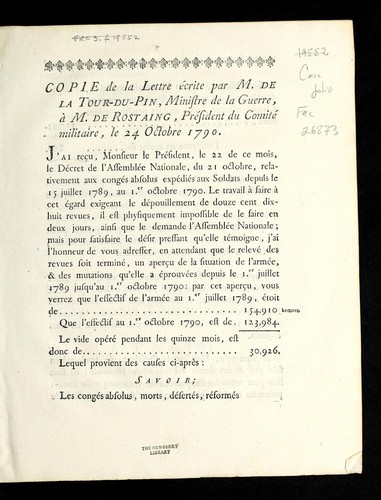 FRC 3. f 19552
19552
Case
folio
FRC
26873
COPIE de la Lettre écrite par M. DE
LA TOUR-DU-PIN, Miniſtre de la Guerre,
à M. DE ROSTAING, Préſident du Comité
militaire, le 24 Octobre 1790.
J'AI reçu, Monſieur le Préſident, le 22 de ce mois,
le Décret de l'Aſſemblée Nationale, du 21 octobre, rela-
tivement aux congés abſolus expédiés aux Soldats depuis le
15 juillet 1789, au 1.er octobre 1790. Le travail à faire à
cet égard exigeant le dépouillement de douze cent dix-
huit revues, il eſt phyſiquement impoſſible de le faire en
deux jours, ainſi que le demande l'Aſſemblée Nationale;
mais pour ſatisfaire le déſir preſſant qu'elle témoigne, j'ai
l'honneur de vous adreſſer, en attendant que le relevé des
revues ſoit terminé, un aperçu de la ſituation de l'armée,
& des mutations qu'elle a éprouvées depuis le 1.er juillet
1789 juſqu'au 1.er octobre 1790: par cet aperçu, vous
verrez que l'effectif de l'armée au 1.er juillet 1789, étoit
de.................................. 154,910 hommes.
Que l'effectif au 1.er octobre 1790, eſt de. 123,984.
Le vide opéré pendant les quinze mois, eſt
donc de.............................. 30,926.
Lequel provient des cauſes ci-après:
SAVOIR;
Les congés abſolus, morts, déſertés, réformés
THE NEWBERRY
LIBRARY